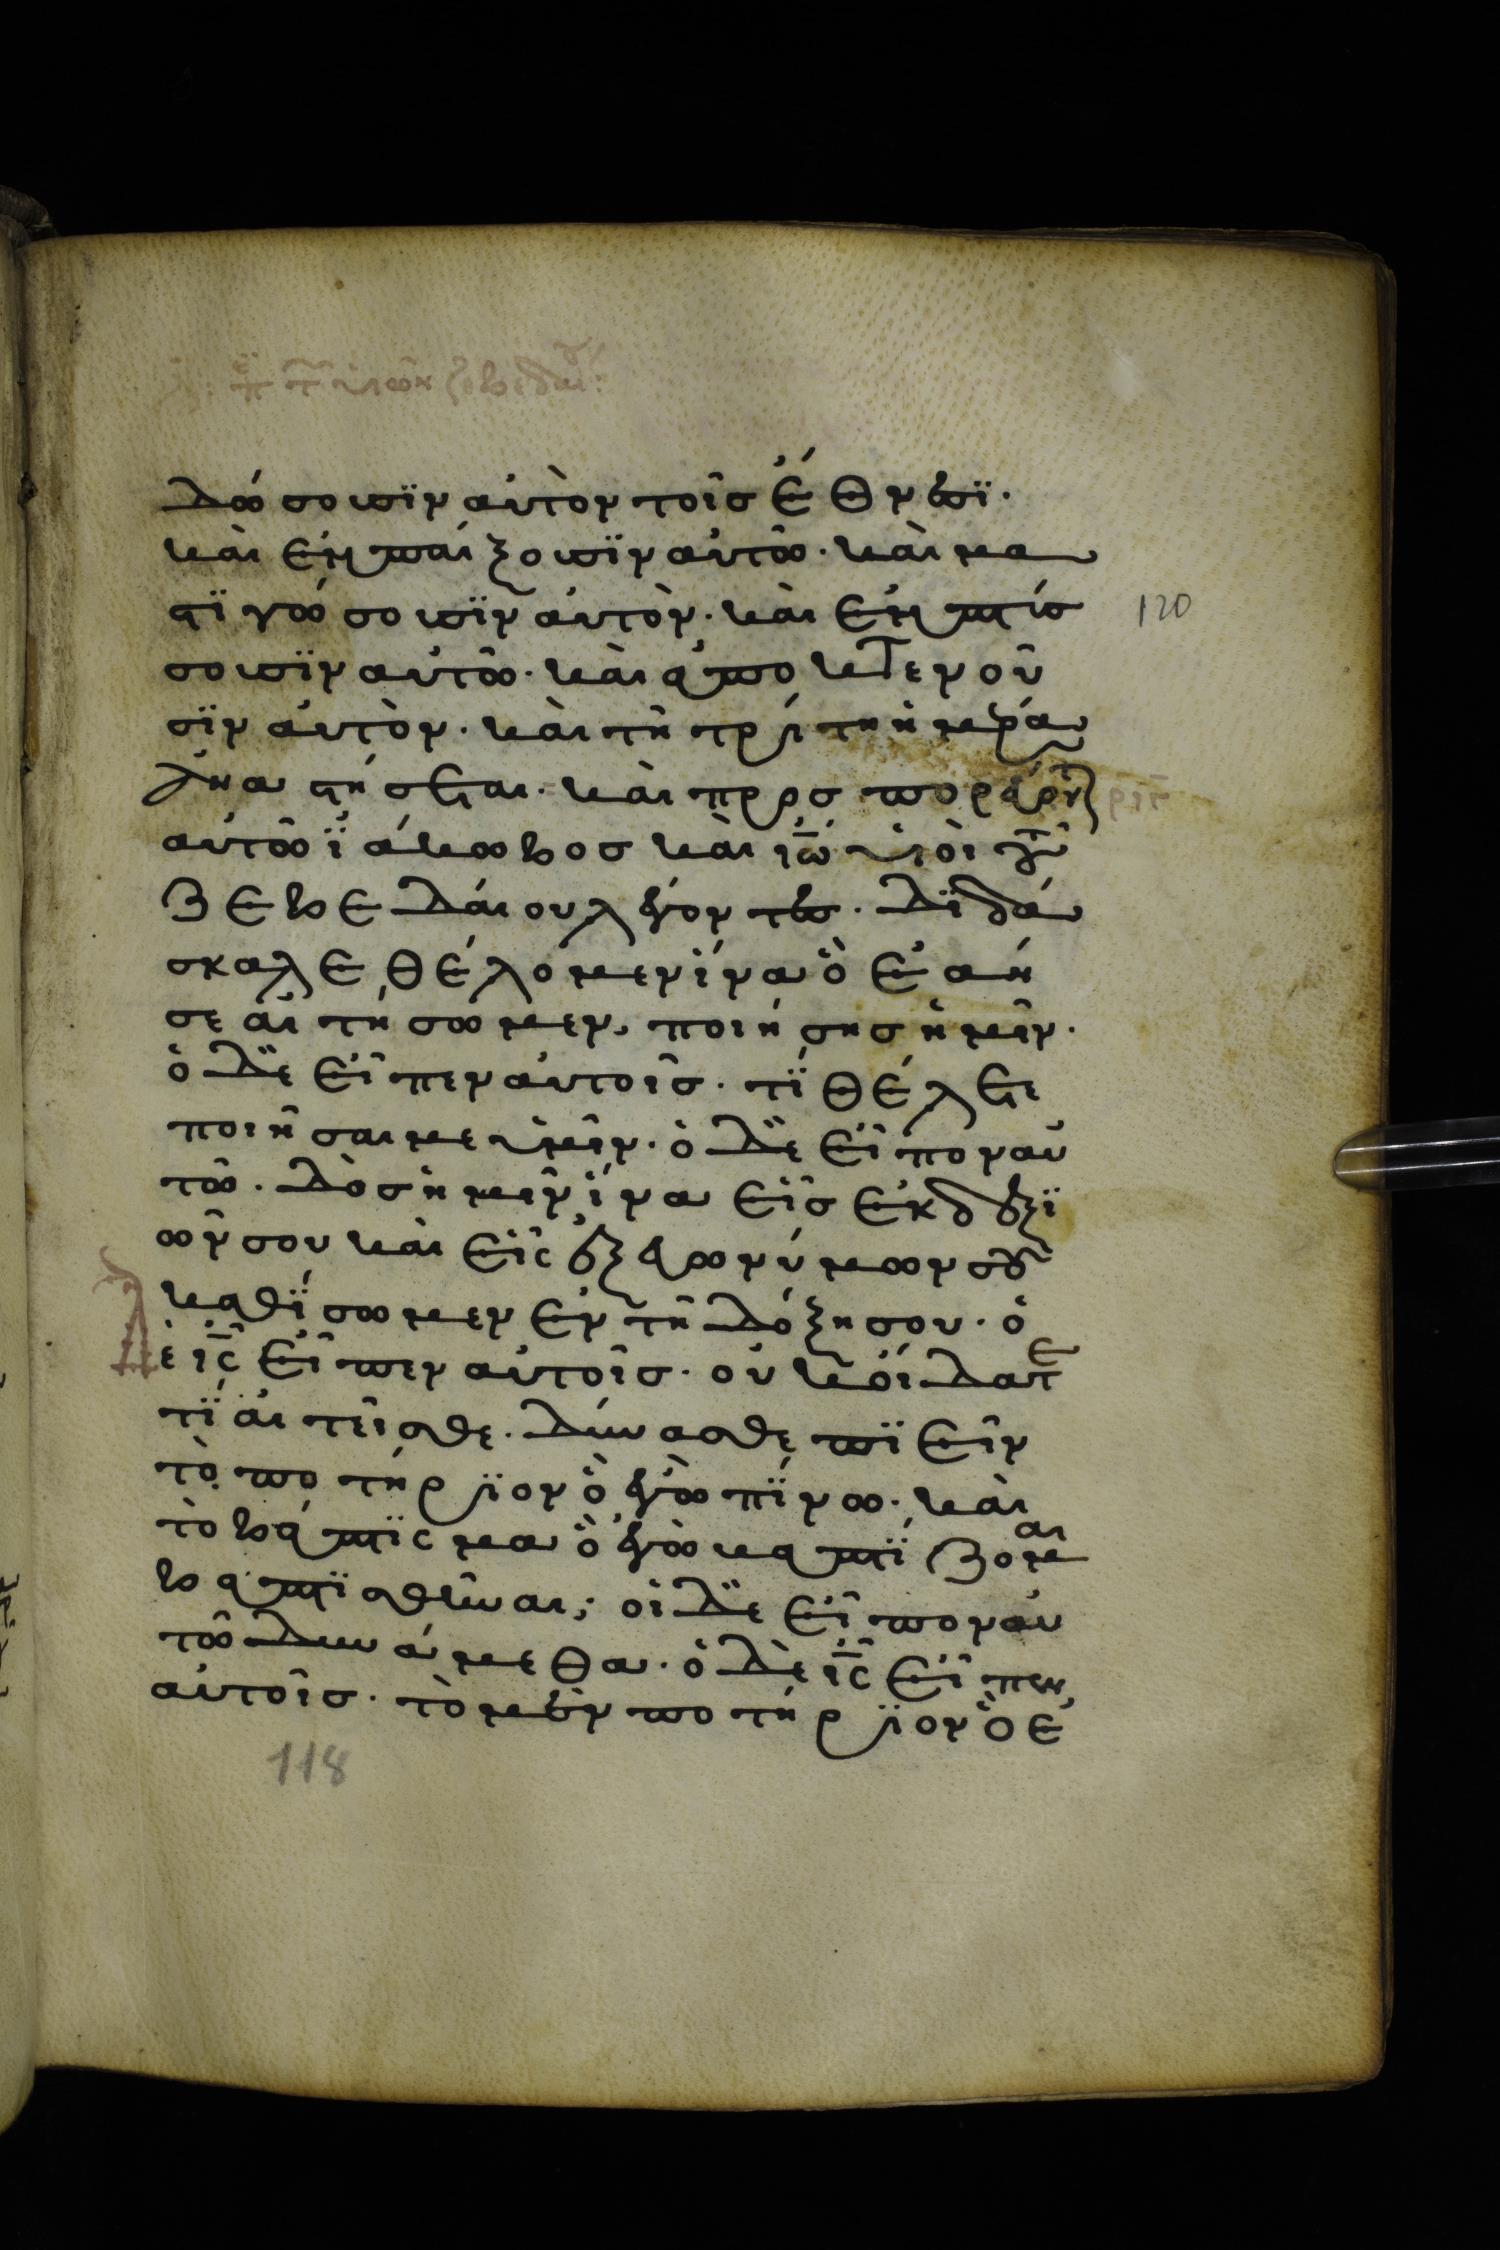 τῶν υἱῶν ζεβεδαίου:
δώσουσϊν αὐτὸν τοῖσ ἔθνεσϊ·
καὶ ἐμπαίξουσϊν αὐτῶ· καὶ μα
στϊγώσουσϊν αὐτὸν· καὶ ἐμπτύσ
σουσϊν αὐτῶ· καὶ ἀποκτενοῦ
σϊν αὐτὸν· καὶ τῆ τρίτη ἡμέρα
ἀναστήσεται· καὶ προσπορεύονται
αὐτῶ ϊάκωβοσ καὶ ιω̅ υἱοὶ τοῦ
ζεβεδαίου λέγοντεσ· δϊδά
σκαλε θέλομεν ἵνα ὃ ἐὰν
σε αἰτήσωμεν, ποιήσησ ἡμῖν·
ὁ δὲ εἶπεν αὐτοῖσ· τϊ θέλετε
ποιῆσαι με ὑμῖν· ὁ δὲ εἶπον αὐ
τῶ· δὸσ ἡμῖν ἵνα εἷσ ἐκ δεξϊ
ῶν σου καὶ εἷς ἐξ εὐωνύμων σου
καθϊσωμεν ἐν τῆ δόξη σου· ὁ
δὲ ις̅ εἶπεν αὐτοῖσ· οὐκ οἴδατε
τϊ αἰτεῖσθε· δύνασθε πϊεῖν
τὸ ποτήριον ὃ ἐγὼ πϊνω· καὶ
τὸ βάπτϊσμα ὃ ἐγὼ βαπτϊζομαι
βαπτϊσθῆναι; οἱ δὲ εἶπον αὐ
τῶ δυνάμεθα· ὁ δὲ ις̅ εἶπεν
αὐτοῖσ· τὸ μὲν ποτήριον ὃ ἐ
120
118